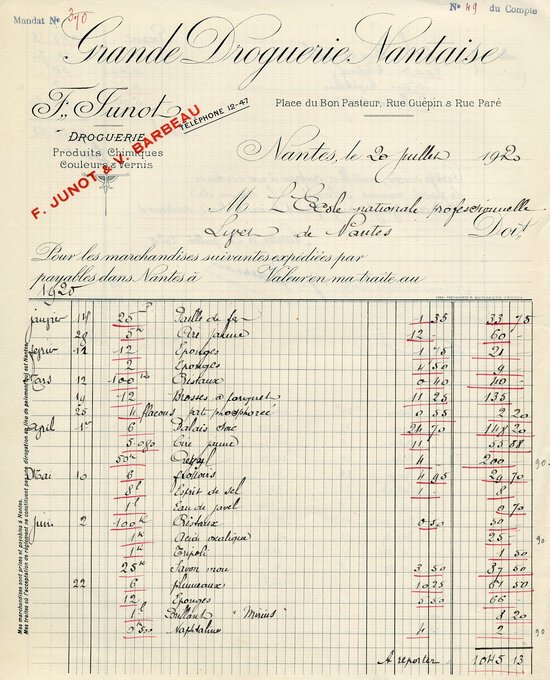 Mandat No 370
No 49 du Compte
Grande Droguerie Nantaise
F. Junot
DROGUERIE
Produits Chimiques
Couleurs & Vernis
F. JUNOT & V. BARBEAU
TÉLÉPHONE 12-47
Place du Bon Pasteur, Rue Guépin & Rue Paré
Nantes, le 20 juillet 1920
M L'Ecole nationale professionnelle
Livet de Nantes Doit
Pour les marchandises suivantes expédiées par
payables dans Nantes à Valeur en ma traite au
1920
janvier 14 25 Paille de fer 1 35 33 75
29 5k Cire jaune 12 60 -
fevrier 12 12 Eponges 1 75 21
2 Eponges 4 50 9
Mars 12 100k Cristaux 0 40 40 -
19 12 Brosses à parquet 11 25 135
25 4 flacons pat phosphorée 0 55 2 20
Avril 1er 6 Balais 24 70 148 20
5 080 Cire jaune 11 55 88
50k 4 200
Mai 10 6 4 95 29 70
8l Esprit de sel 1 8
1l Eau de javel 0 70
Juin 2 100k Cristaux 0 50 50
1k Acide oxalique 25 -
1k Tripoli 1 50
25k Savon mou 3 50 87 50
22 6 plumeaux 10 25 61 50
12 Eponges 5 50 66
1l Brillant "Mirius" 8 20
0k500 Naphtaline 4 2
A reporter 1045 13
Mes marchandises sont prises et payables à Nantes.
Mes traites ou l'acceptation de règlement ne constituent pas une dérogation au lieu de paiement qui est Nantes.